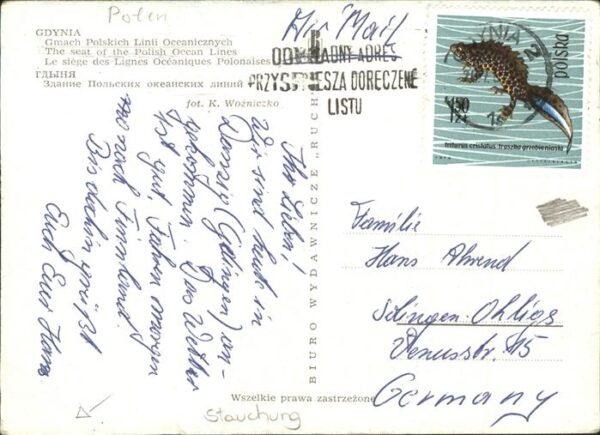 Polen
GDYNIA
Gmach Polskich Linii Oceanicznych
The seat of the Polish Ocean Lines
Le siège des Lignes Océaniques Polonaises
ГДЫНЯ
Здание Польских океанских линий
fot. K. Woźniczko
Air Mail
DOKŁADNY ADRES
PRZYSPIESZA DORĘCZENIE
LISTU
GDYNIA 2
POLSKA
1,50
ZŁ
triturus cristatus traszka grzebieniasta
Ihr Lieben!
Wir sind heute in
Danzig (Gdingen) an-
gekommen. Das Wetter
ist gut, Fahren morgen
nach Finnland.
Bis dahin grüßt
Euch Euer Hans
BIURO WYDAWNICZE „RUCH"
Familie
Hans Ahrend
Solingen-Ohligs
Venusstr. 115
Germany
Wszelkie prawa zastrzeżone
Stauchung